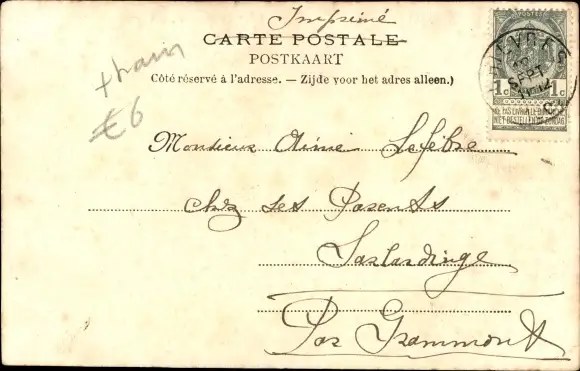 Imprimé
CARTE POSTALE
POSTKAART
Côté réservé à l'adresse. — Zijde voor het adres alleen.)
+ train
€6
CHIÈVRES
SEPT
1c 1c
NE PAS LIVRER LE DIMANCHE
NIET BESTELLEN OP ZONDAG
Monsieur Aimé Lefebre
chez ses Parents
Sarlardinge
Par Grammont